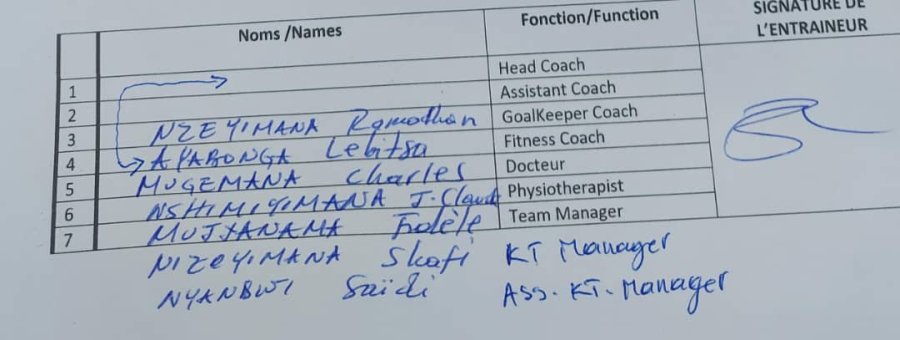 Noms /Names Fonction/Function SIGNATURE DE L'ENTRAINEUR
1 Head Coach
2 Assistant Coach
3 NZEYIMANA Ramathan GoalKeeper Coach
4 AYABONGA Lebitsa Fitness Coach
5 MUGEMANA Charles Docteur
6 NSHIMIYIMANA J. Claude Physiotherapist
7 MUJYANAMA Fidèle Team Manager
NIZEYIMANA Skafi KT Manager
NYANBWI Saïdi Ass. KT. Manager